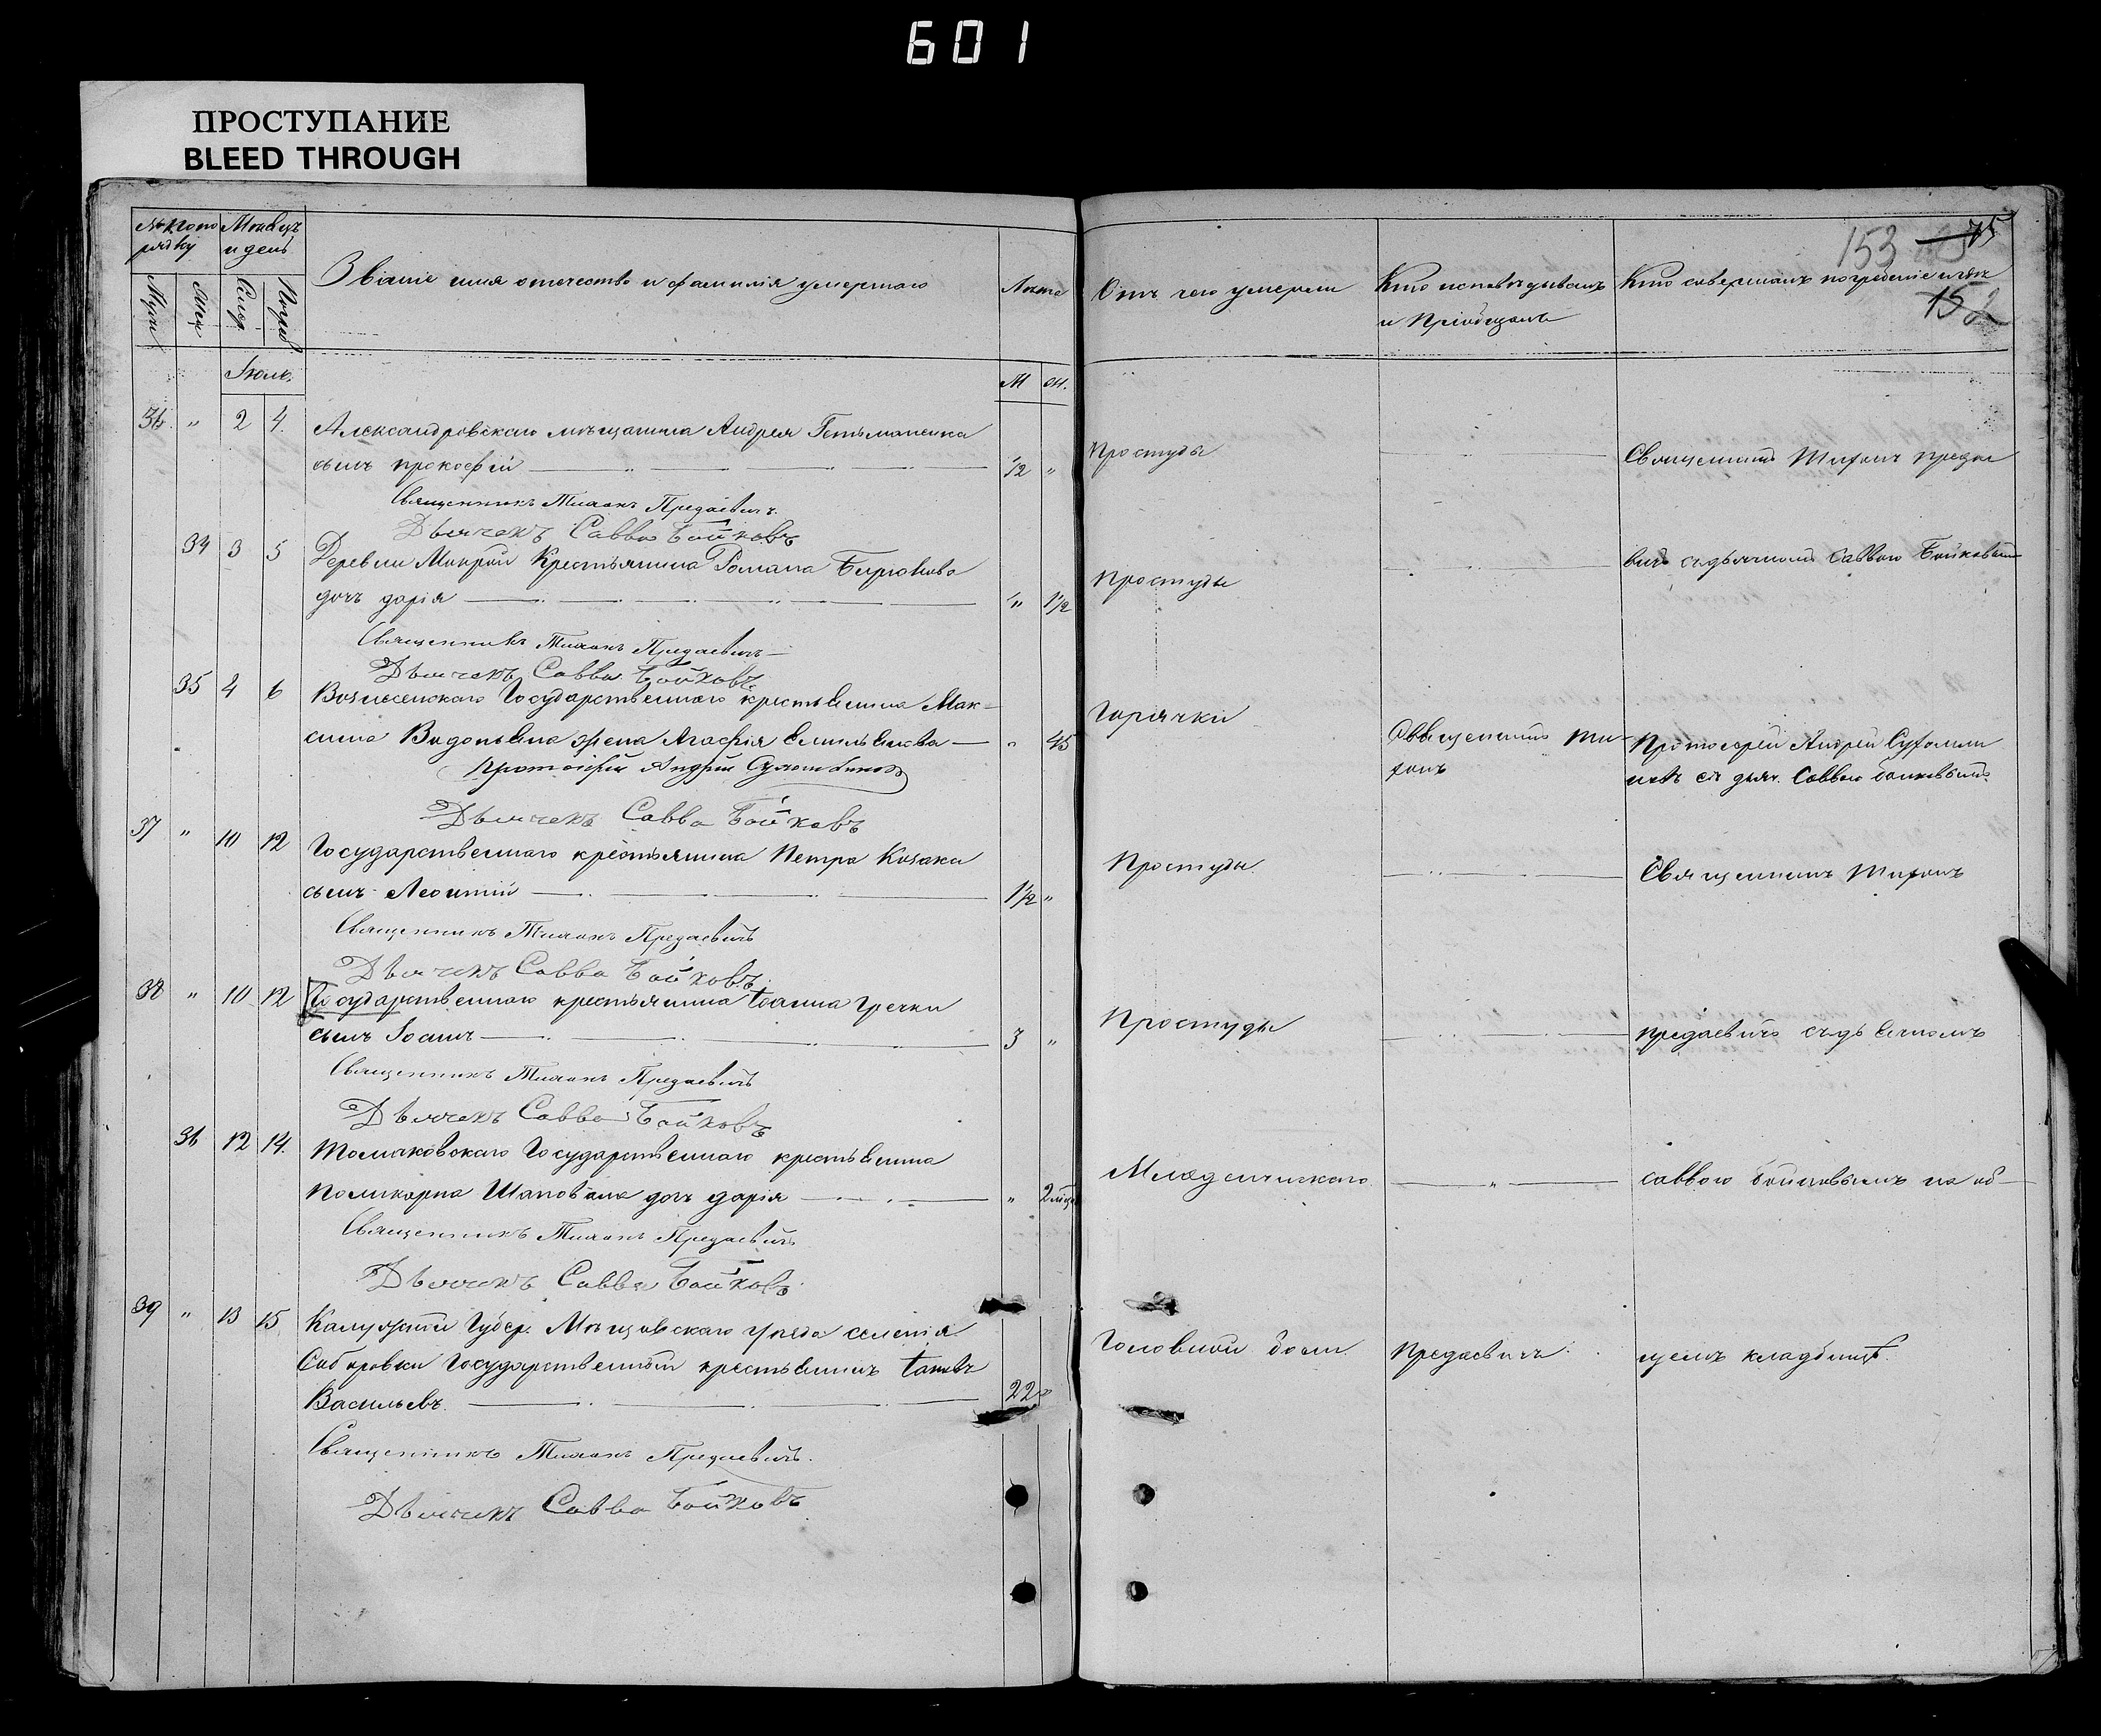 601
ПРОСТУПАНИЕ
BLEED THROUGH
№ по по
рядку
Мѣсяцъ
и день
Званіе имя отечество и фамилія умершаго
Лѣта
Отъ чего умерли
Кто исповѣдывалъ
и Пріобщалъ
Кто совершалъ погребеніе и гдѣ
153
75
152
Муж
Жен
Смер.
Погреб
Іюль.
М
Ж.
36. " 2 4. Александровскаго мѣщанина Андрея Гетьманенка
сынъ прокофій ½ "
Простуды
Священникъ Тихонъ Предае
Священникъ Тихонъ Предаевичъ.
Дьячекъ Савва Бойковъ
34 3 5 Деревни Мокрой Крестьянина Романа Бирюкова
дочь дарія " 1½
Простуды
вичъ съ дьячкомъ Саввою Бойковымъ
Священникъ Тихонъ Предаевичъ
Дьячекъ Савва Бойковъ
35 4 6 Вознесенскаго Государственнаго крестьянина Мак-
сима Водопьяна жена Агафія Емельянова " 45
Горячки
Священникъ Ти-
хонъ
Протоіерей Андрей Сухомли
новъ съ дьяч. Саввою Бойковымъ
Протоіерей Андрей Сухомлиновъ
Дьячекъ Савва Бойковъ
37 " 10 12 Государственнаго крестьянина Петра Козака
сынъ Леонтій 1½ "
Простуды.
Священникъ Тихонъ
Священникъ Тихонъ Предаевичъ
Дьячекъ Савва Бойковъ
38 " 10 12 Государственнаго крестьянина Іоанна Гречки
сынъ Іоанъ 3 "
Простуды
предаевичъ съ дьячкомъ
Священникъ Тихонъ Предаевичъ
Дьячекъ Савва Бойковъ
36 12 14. Томаковскаго Государственнаго крестьянина
Поликарпа Шаповала дочь дарія " 2 мѣся
Младенческаго
саввою бойковымъ на об-
Священникъ Тихонъ Предаевичъ
Дьячекъ Савва Бойковъ
39 " 13 15 Калужской Губер. Мѣщовскаго уѣзда селенія
Государственный крестьянинъ Іаковъ
Васильевъ 22 "
Головной боли
Предаевичъ
щемъ кладбищѣ.
Священникъ Тихонъ Предаевичъ.
Дьячекъ Савва Бойковъ